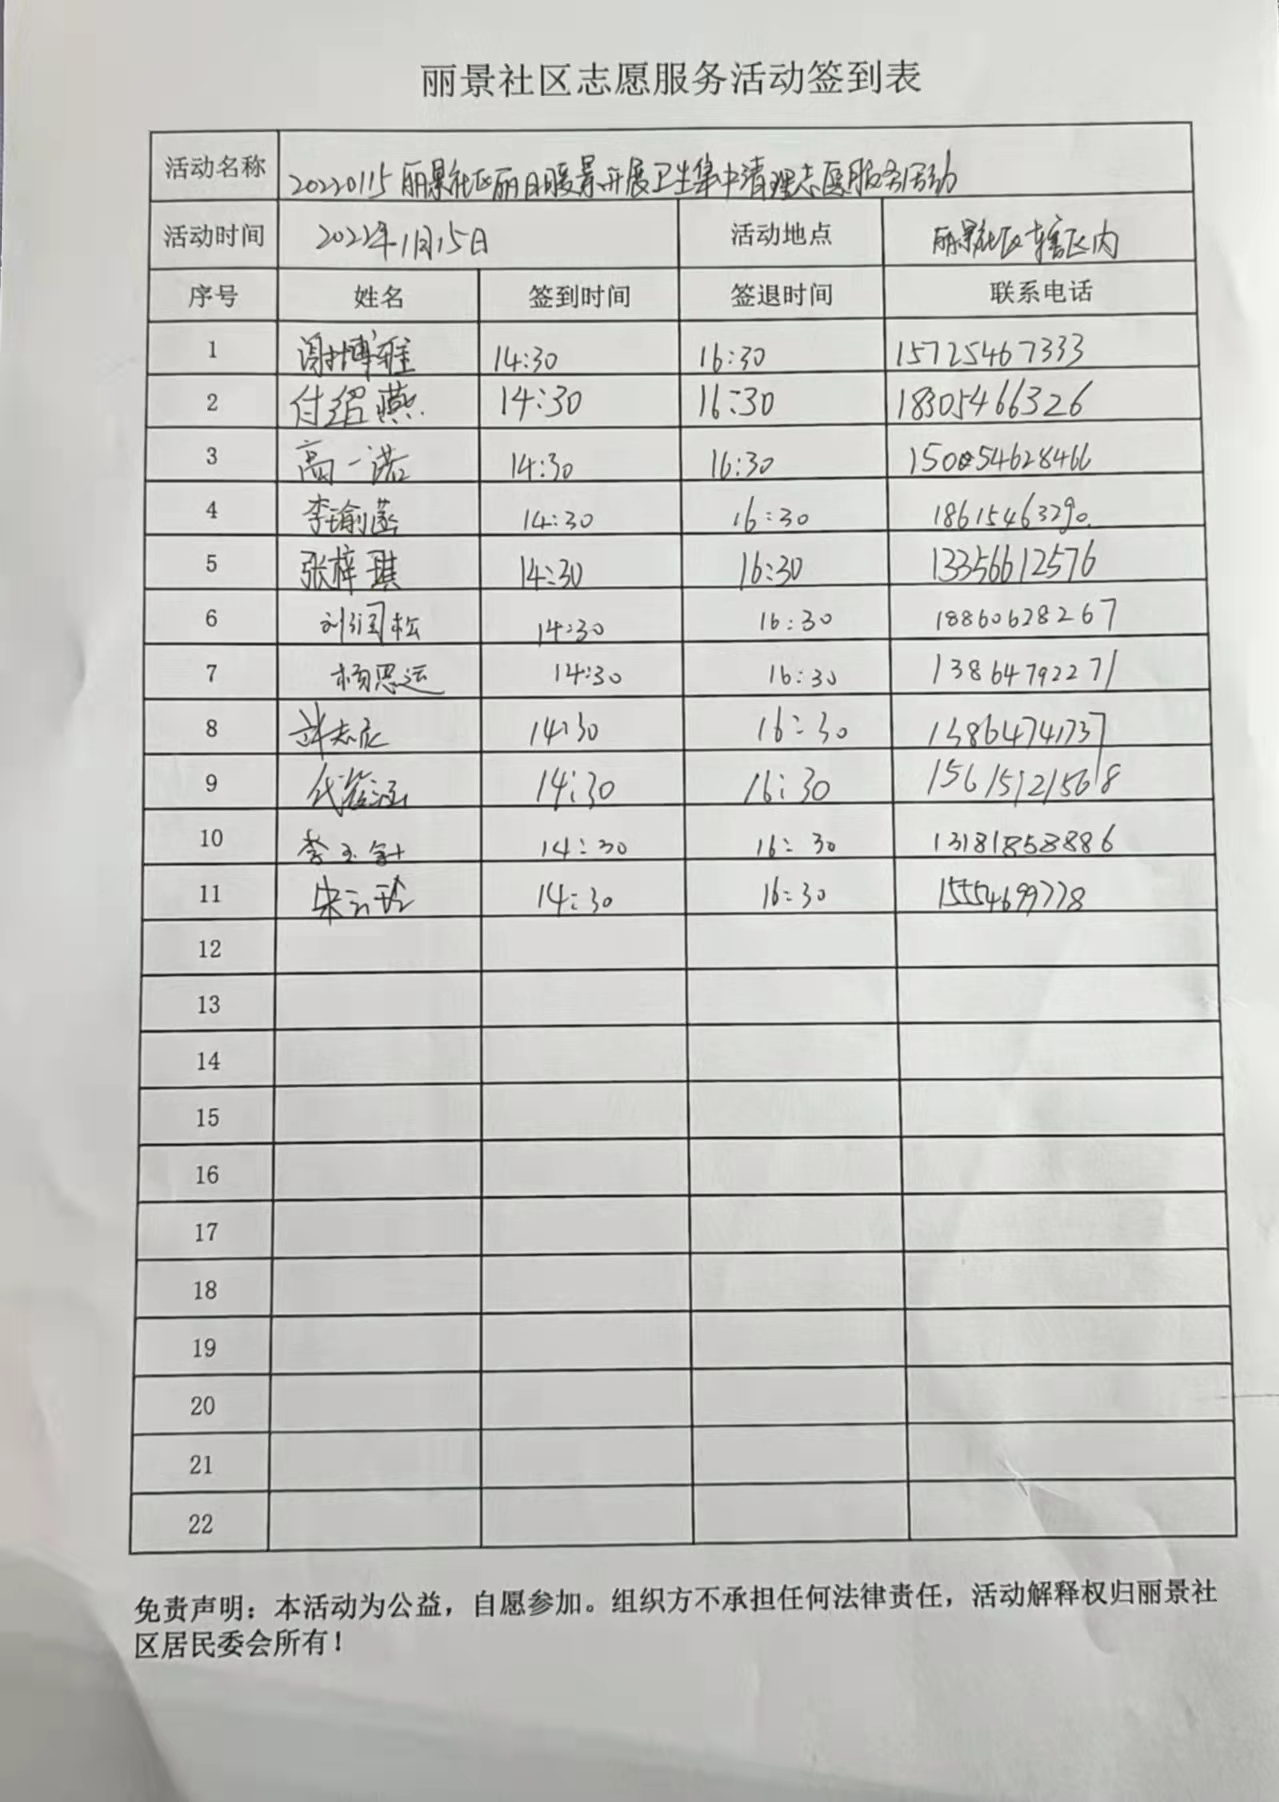 丽景社区志愿服务活动签到表
活动名称 20220115丽景社区丽日暖景开展卫生集中清理志愿服务活动
活动时间 2022年1月15日 活动地点 丽景社区辖区内
序号 姓名 签到时间 签退时间 联系电话
1 谢博雅 14:30 16:30 15725467333
2 付绍燕 14:30 16:30 18305466326
3 高一诺 14:30 16:30
4 李瑜菡 14:30 16:30 18615463290
5 张梓琪 14:30 16:30 13356612576
6 刘润松 14:30 16:30 18860628267
7 杨思运 14:30 16:30 13864792271
8 14:30 16:30 13864741737
9 14:30 16:30 15615121568
10 李玉 14:30 16:30 13181858886
11 宋云玲 14:30 16:30 15554699778
12
13
14
15
16
17
18
19
20
21
22
免责声明：本活动为公益，自愿参加。组织方不承担任何法律责任，活动解释权归丽景社
区居民委会所有！